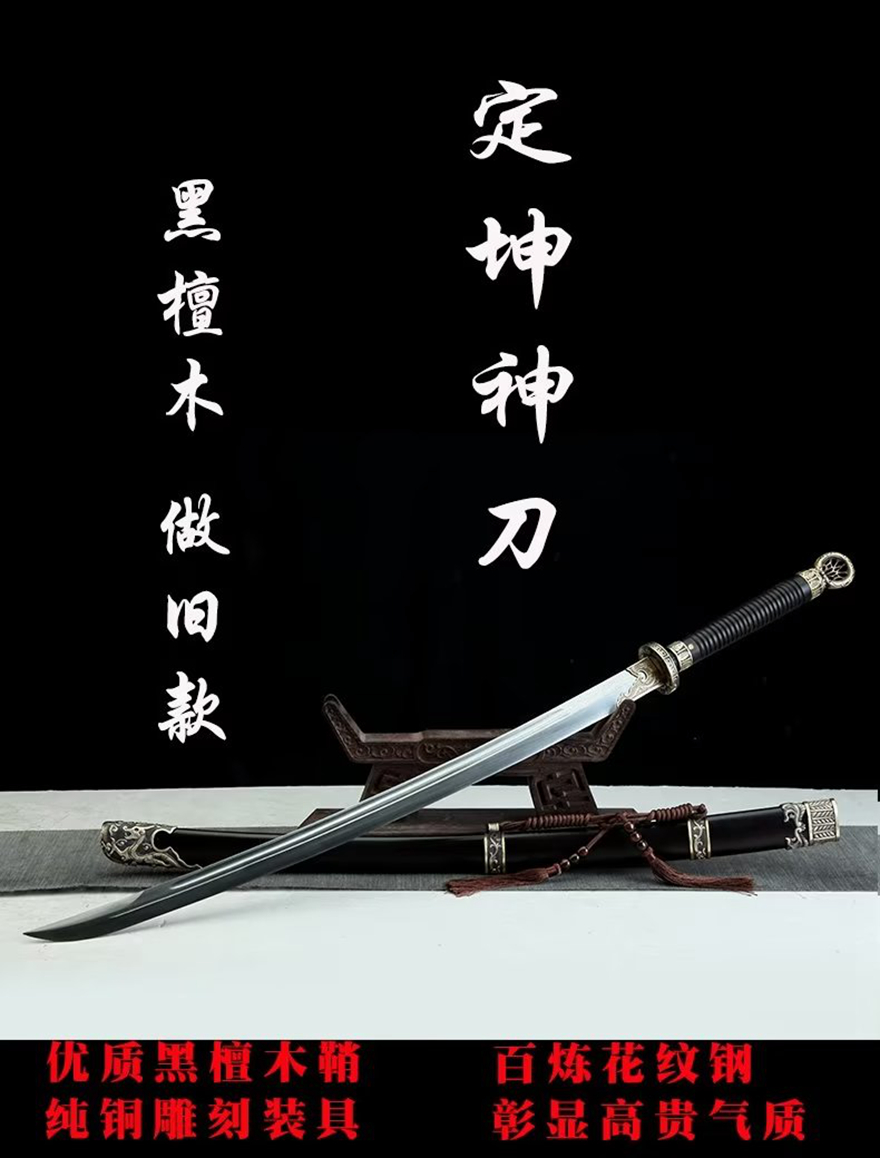 定坤神刀
黑檀木 做旧款
优质黑檀木鞘
百炼花纹钢
纯铜雕刻装具
彰显高贵气质